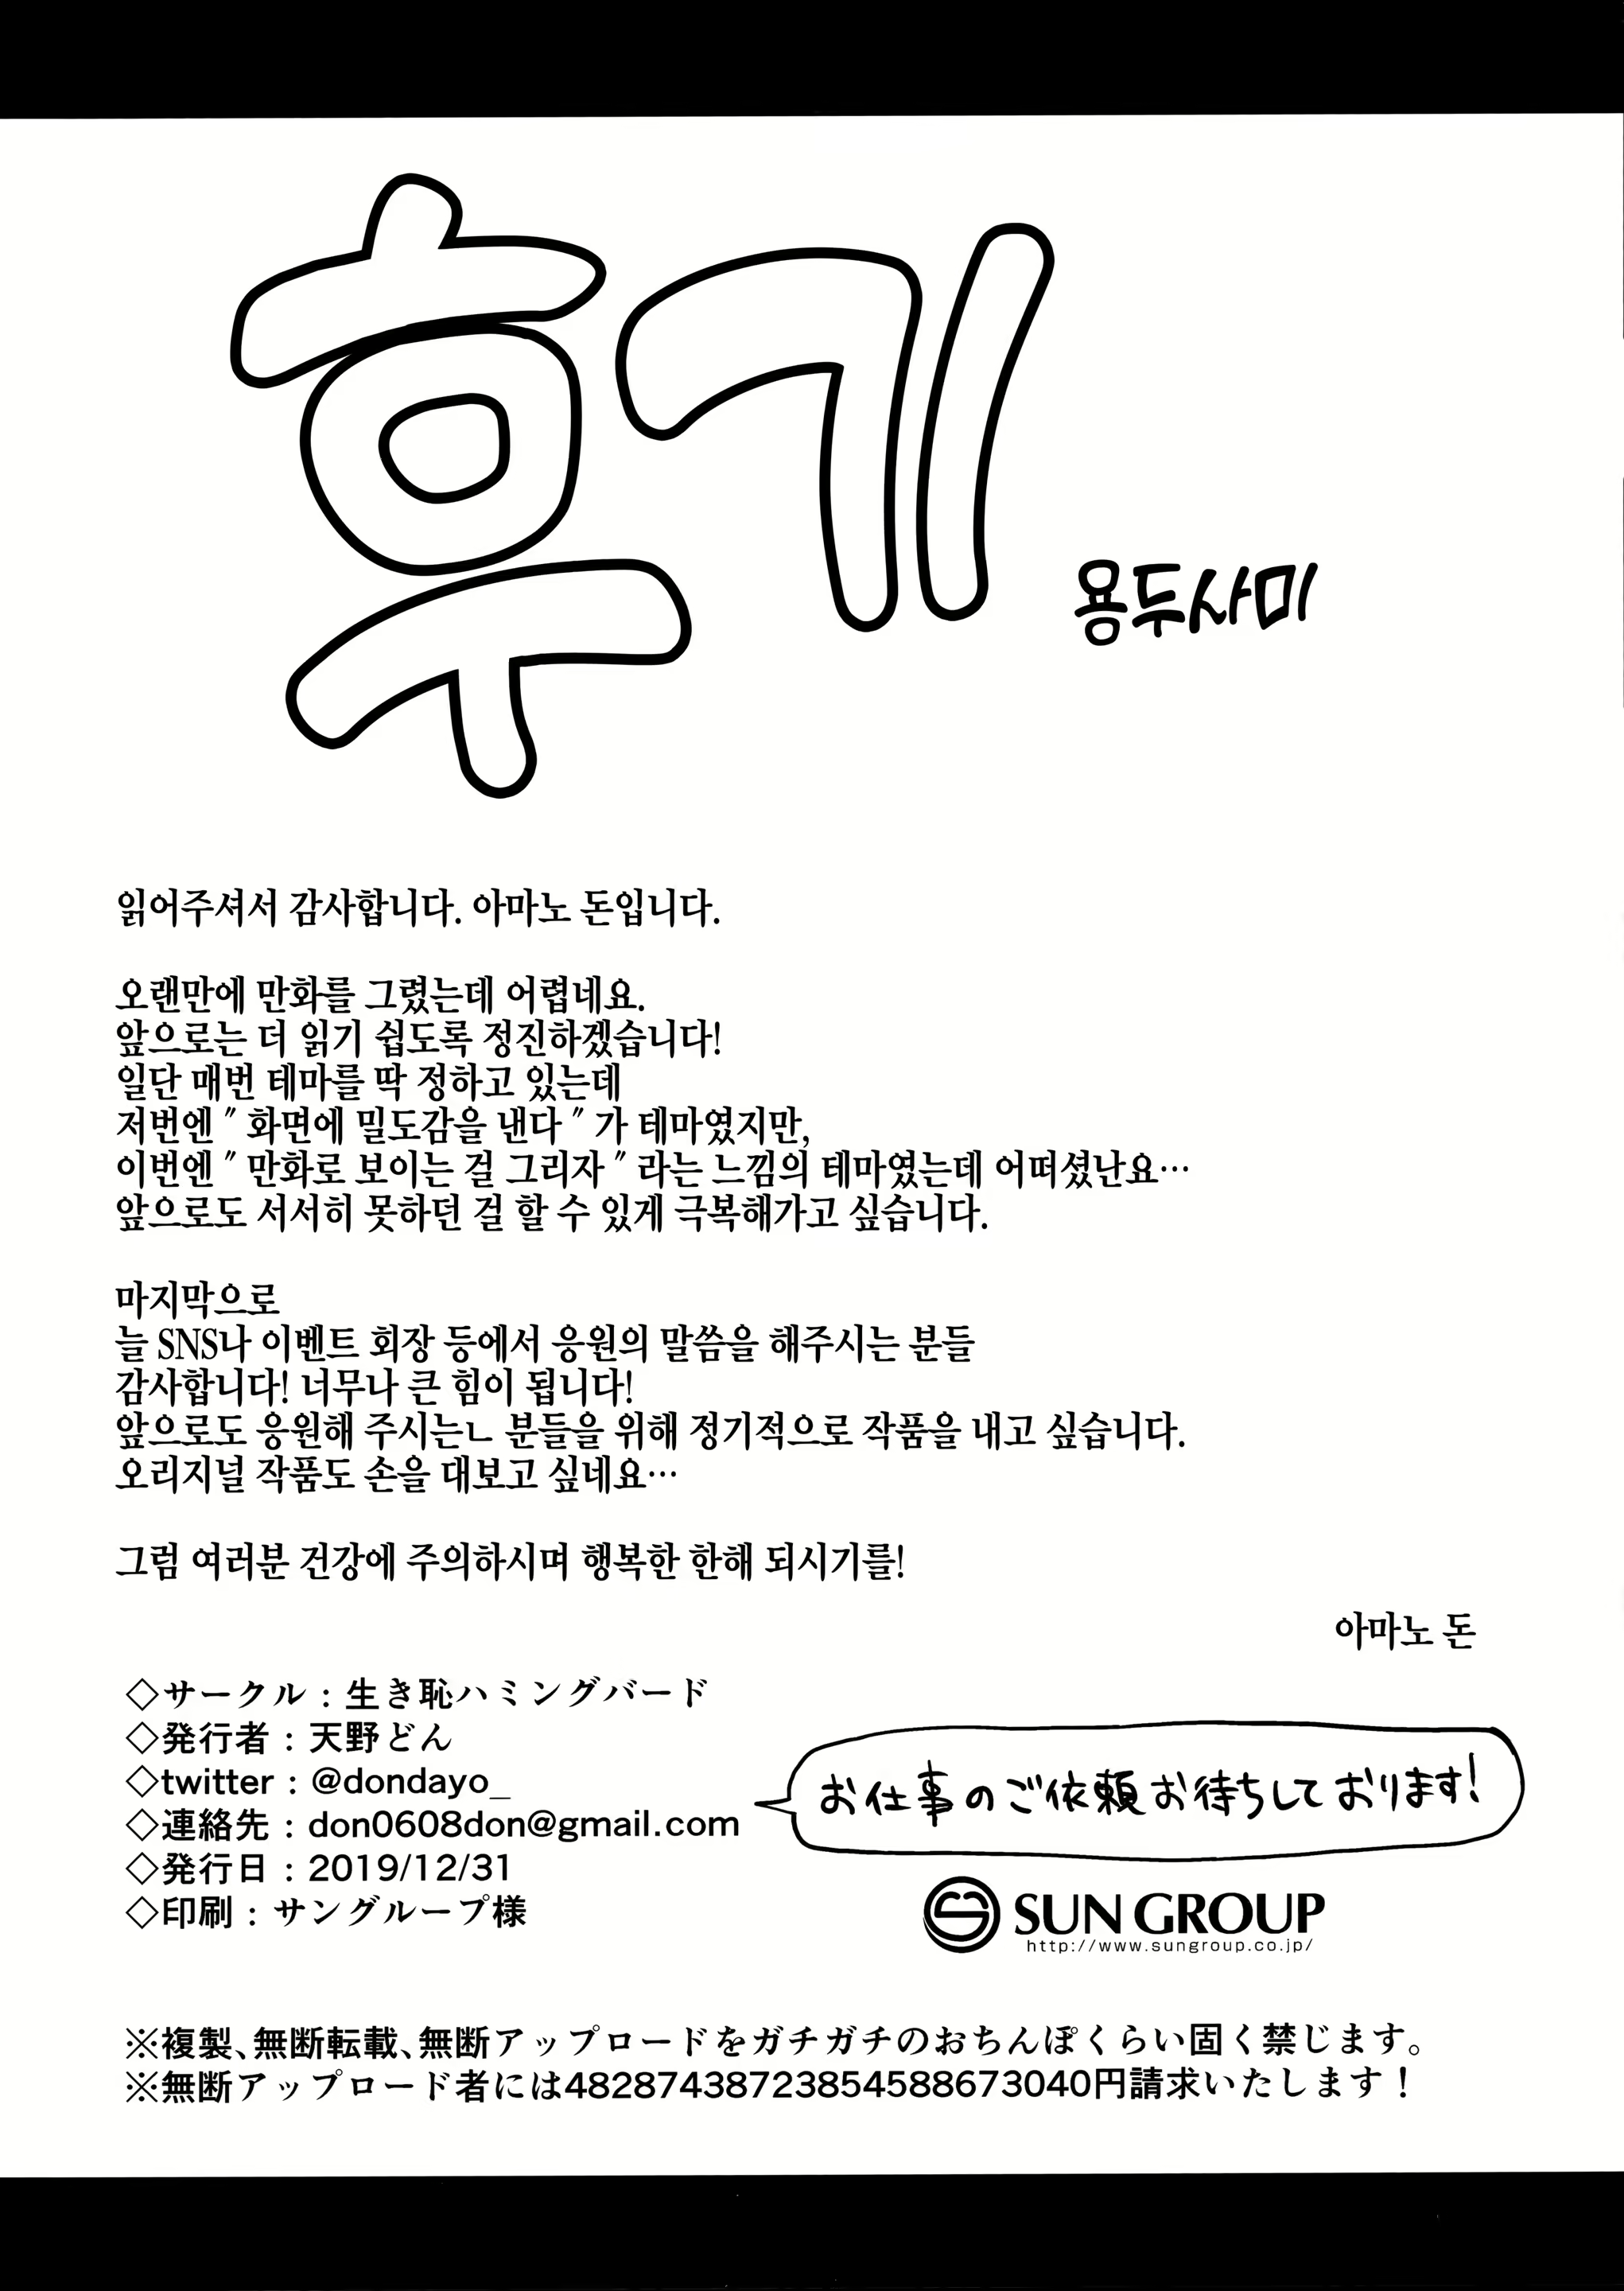 후기
용두사미
읽어주셔서 감사합니다. 아마노 돈입니다.
오랜만에 만화를 그렸는데 어렵네요.
앞으로는 더 읽기 쉽도록 정진하겠습니다!
일단 매번 테마를 딱 정하고 있는데
저번엔 ″ 화면에 밀도감을 낸다 ″ 가 테마였지만,
이번엔 ″ 만화로 보이는 걸 그리자 ″ 라는 느낌의 테마였는데 어떠셨난요…
앞으로도 서서히 못하던 걸 할 수 있게 극복해가고 싶습니다.
마지막으로
늘 SNS나 이벤트 회장 등에서 응원의 말씀을 해주시는 분들
감사합니다! 너무나 큰 힘이 됩니다!
앞으로도 응원해 주시는ㄴ 분들을 위해 정기적으로 작품을 내고 싶습니다.
오리지널 작품도 손을 대보고 싶네요…
그럼 여러분 건강에 주의하시며 행복한 한해 되시기를!
아마노 돈
◇サークル：生き恥ハミングバード
◇発行者：天野どん
◇twitter：@dondayo_
◇連絡先：don0608don@gmail.com
お仕事のご依頼お待ちしております!
◇発行日：2019/12/31
◇印刷：サングループ様
SUN GROUP
http://www.sungroup.co.jp/
※複製、無断転載、無断アップロードをガチガチのおちんぽくらい固く禁じます。
※無断アップロード者には48287438723854588673040円請求いたします！